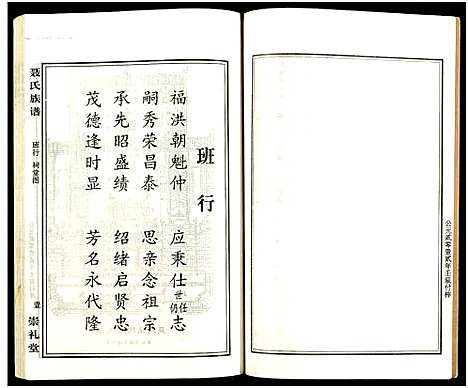 公元贰零壹贰年壬辰付梓
班行
福洪朝魁仲 应秉仕世任仍志
嗣秀荣昌泰 思亲念祖宗
承先昭盛绩 绍绪启贤忠
茂德逢时显 芳名永代隆
聂氏族谱
班行 祠堂图
崇礼堂